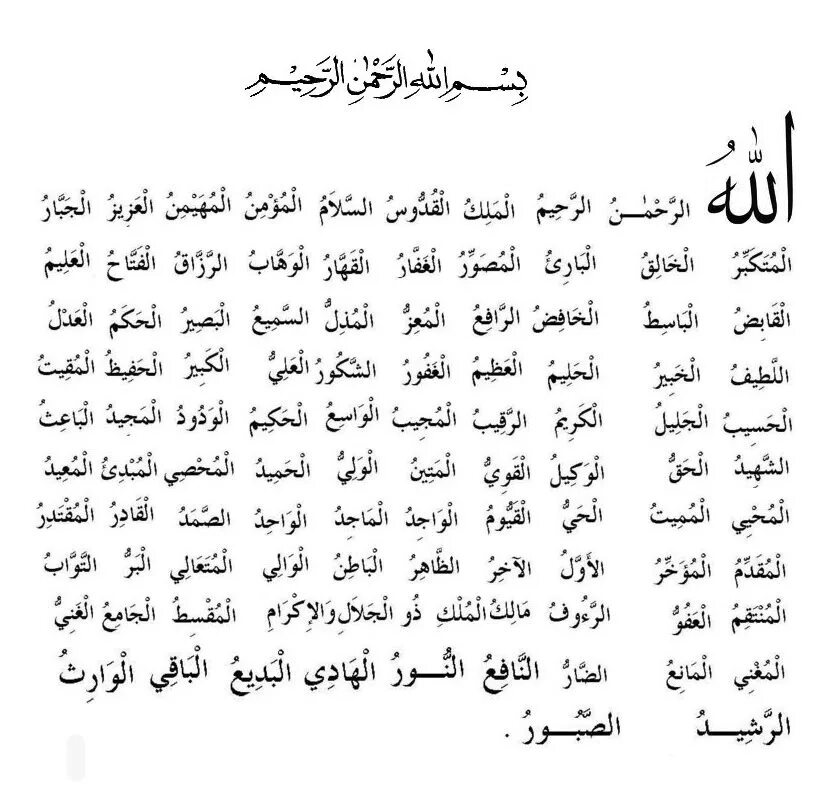 بِسْمِ اللهِ الرَّحْمٰنِ الرَّحِيْمِ
اللهُ الرَّحْمٰنُ الرَّحِيمُ الْمَلِكُ الْقُدُّوسُ السَّلَامُ الْمُؤْمِنُ الْمُهَيْمِنُ الْعَزِيزُ الْجَبَّارُ
الْمُتَكَبِّرُ الْخَالِقُ الْبَارِئُ الْمُصَوِّرُ الْغَفَّارُ الْقَهَّارُ الْوَهَّابُ الرَّزَّاقُ الْفَتَّاحُ الْعَلِيمُ
الْقَابِضُ الْبَاسِطُ الْخَافِضُ الرَّافِعُ الْمُعِزُّ الْمُذِلُّ السَّمِيعُ الْبَصِيرُ الْحَكَمُ الْعَدْلُ
اللَّطِيفُ الْخَبِيرُ الْحَلِيمُ الْعَظِيمُ الْغَفُورُ الشَّكُورُ الْعَلِيُّ الْكَبِيرُ الْحَفِيظُ الْمُقِيتُ
الْحَسِيبُ الْجَلِيلُ الْكَرِيمُ الرَّقِيبُ الْمُجِيبُ الْوَاسِعُ الْحَكِيمُ الْوَدُودُ الْمَجِيدُ الْبَاعِثُ
الشَّهِيدُ الْحَقُّ الْوَكِيلُ الْقَوِيُّ الْمَتِينُ الْوَلِيُّ الْحَمِيدُ الْمُحْصِي الْمُبْدِئُ الْمُعِيدُ
الْمُحْيِي الْمُمِيتُ الْحَيُّ الْقَيُّومُ الْوَاجِدُ الْمَاجِدُ الْوَاحِدُ الصَّمَدُ الْقَادِرُ الْمُقْتَدِرُ
الْمُقَدِّمُ الْمُؤَخِّرُ الأَوَّلُ الآخِرُ الظَّاهِرُ الْبَاطِنُ الْوَالِي الْمُتَعَالِي الْبَرُّ التَّوَّابُ
الْمُنْتَقِمُ الْعَفُوُّ الرَّءُوفُ مَالِكُ الْمُلْكِ ذُو الْجَلَالِ وَالإِكْرَامِ الْمُقْسِطُ الْجَامِعُ الْغَنِيُّ
الْمُغْنِي الْمَانِعُ الضَّارُّ النَّافِعُ النُّورُ الْهَادِي الْبَدِيعُ الْبَاقِي الْوَارِثُ
الرَّشِيدُ الصَّبُورُ .